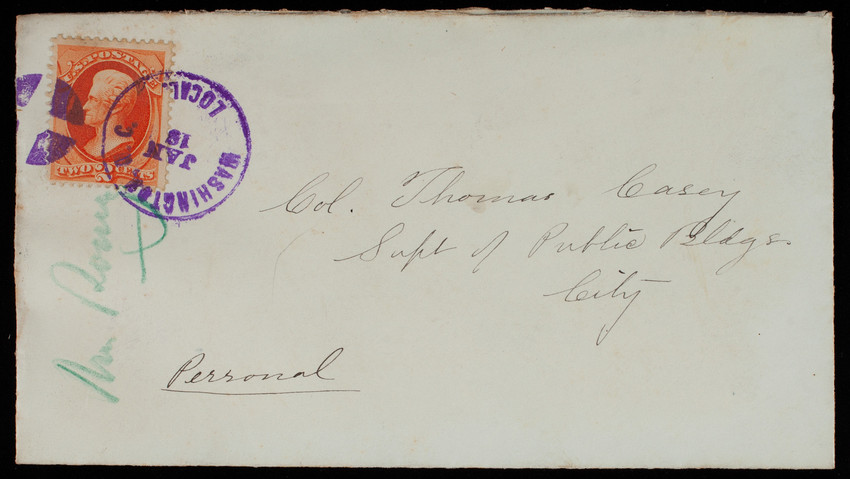 U.S. POSTAGE
TWO 2 CENTS
WASHINGTON D.C.
JAN
18
LOCAL.
Col. Thomas Casey
Supt of Public Bldgs.
City
Personal